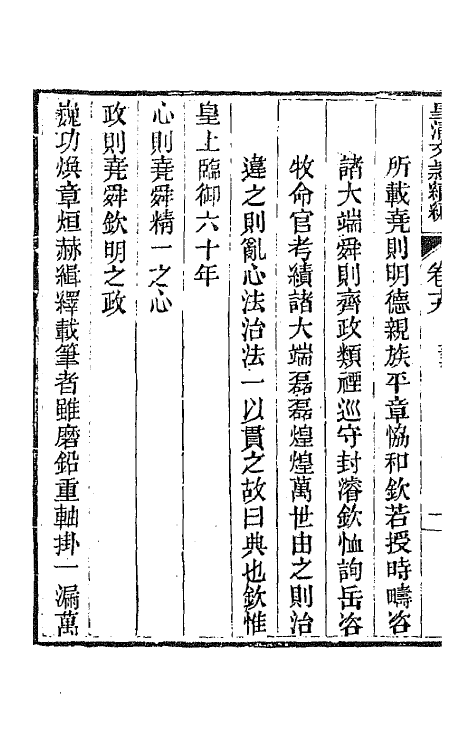 皇清文潁續編
卷十九
所載堯則明德親族平章恊和欽若授時疇咨
諸大端舜則齊政類禋巡守封濬欽恤詢岳咨
牧命官考績諸大端磊磊煌煌萬世由之則治
違之則亂心法治法一以貫之故曰典也欽惟
皇上臨御六十年
心則堯舜精一之心
政則堯舜欽明之政
巍功煥章烜赫緝釋載筆者雖磨鉛重軸掛一漏萬